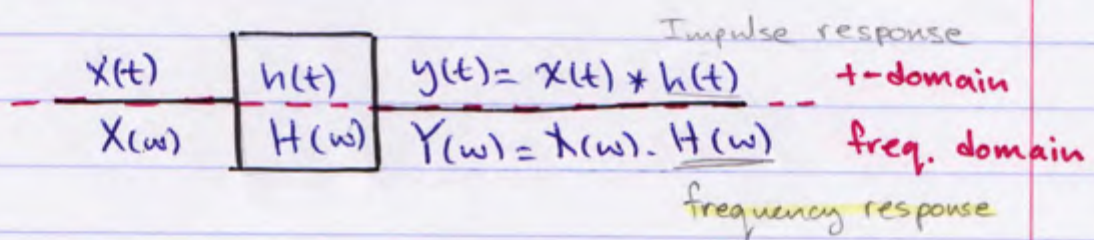 Impulse response
x(t) h(t) y(t) = x(t) * h(t) t-domain
X(w) H(w) Y(w) = X(w) . H(w) freq. domain
frequency response